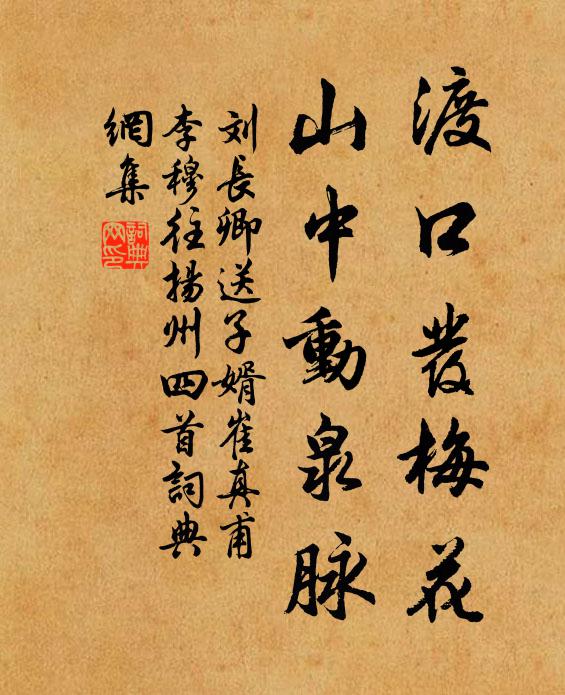 渡口發梅花
山中動泉脉
刘長卿送子婿崔真甫
李穆往揚州四首詞典
網集
詞典
网印